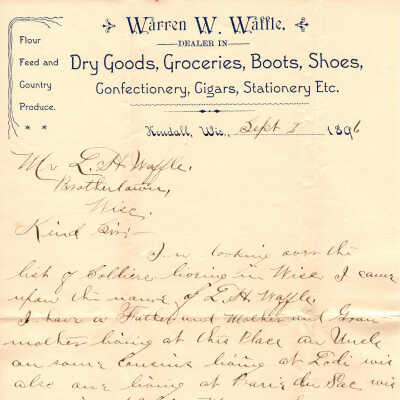 Warren W. Waffle,
DEALER IN
Dry Goods, Groceries, Boots, Shoes,
Confectionery, Cigars, Stationery Etc.
Flour
Feed and
Country
Produce.
Kendall, Wis., Sept 7 1896
Mr L. H. Waffle.
Brothertown,
Wisc.
Kind Sir:-
In looking over the
list of Soldiers living in Wisc I came
upon the name of L. H. Waffle.
I have a Father and Mother and Gran
mother living at this Place an Uncle
an some Cousins living at Lodi wis
also one living at Barie du Sac wis